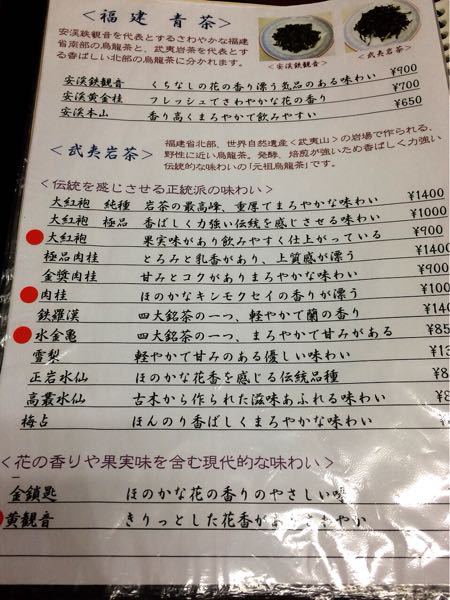 ＜福建 青茶＞
安渓鉄観音を代表とするさわやかな福建
省南部の烏龍茶と、武夷岩茶を代表とす
る香ばしい北部の烏龍茶に分かれます。
＜安渓鉄観音＞
＜武夷岩茶＞
安渓鉄観音 くちなしの花の香り漂う気品のある味わい ¥900
安渓黄金桂 フレッシュでさわやかな花の香り ¥700
安渓本山 香り高くまろやかで飲みやすい ¥650
＜武夷岩茶＞
福建省北部、世界自然遺産＜武夷山＞の岩場で作られる、
野性に近い烏龍茶。発酵、焙煎が強いため香ばしく力強い
伝統的な味わいの「元祖烏龍茶」です。
＜伝統を感じさせる正統派の味わい＞
大紅袍 純種 岩茶の最高峰、重厚でまろやかな味わい ¥1400
大紅袍 極品 香ばしく力強い伝統を感じさせる味わい ¥1000
大紅袍 果実味があり飲みやすく仕上がっている ¥900
極品肉桂 とろみと乳香があり、上質感が漂う ¥1400
金奨肉桂 甘みとコクがありまろやかな味わい ¥900
肉桂 ほのかなキンモクセイの香りが漂う
鉄羅漢 四大銘茶の一つ、軽やかで蘭の香り
水金亀 四大銘茶の一つ、まろやかで甘みがある
雪梨 軽やかで甘みのある優しい味わい
正岩水仙 ほのかな花香を感じる伝統品種
高叢水仙 古木から作られた滋味あふれる味わい
梅占 ほんのり香ばしくまろやかな味わい
＜花の香りや果実味を含む現代的な味わい＞
金鎖匙 ほのかな花の香りのやさしい
黄観音 きりっとした花香があり